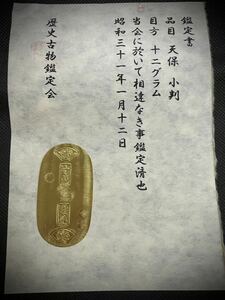 鑑定書
品目 天保 小判
目方 十二グラム
当会に於いて相違なき事鑑定済也
昭和三十一年一月十二日
歴史古物鑑定会